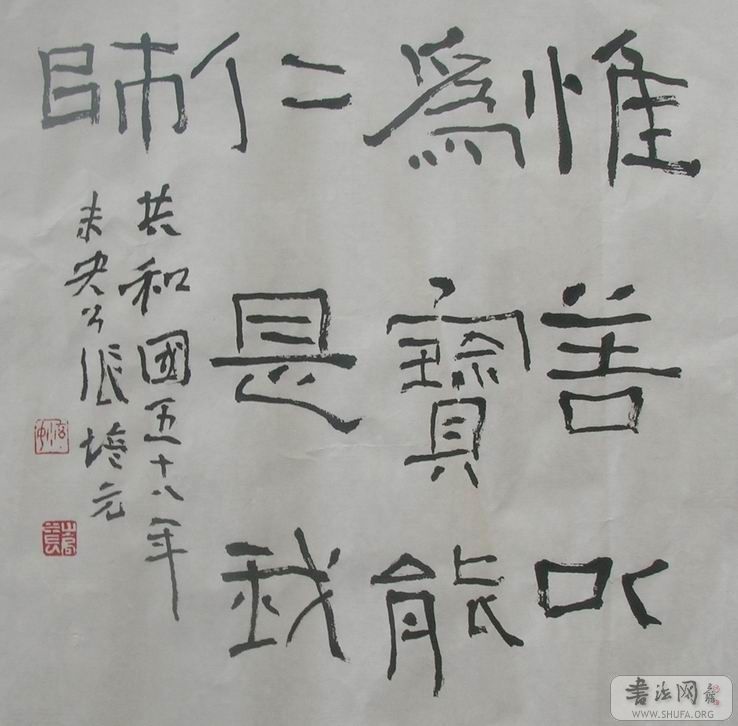 惟善以
為寶能
仁是我
師
共和國五十八年
未央公張培元
書法网
WWW.SHUFA.ORG